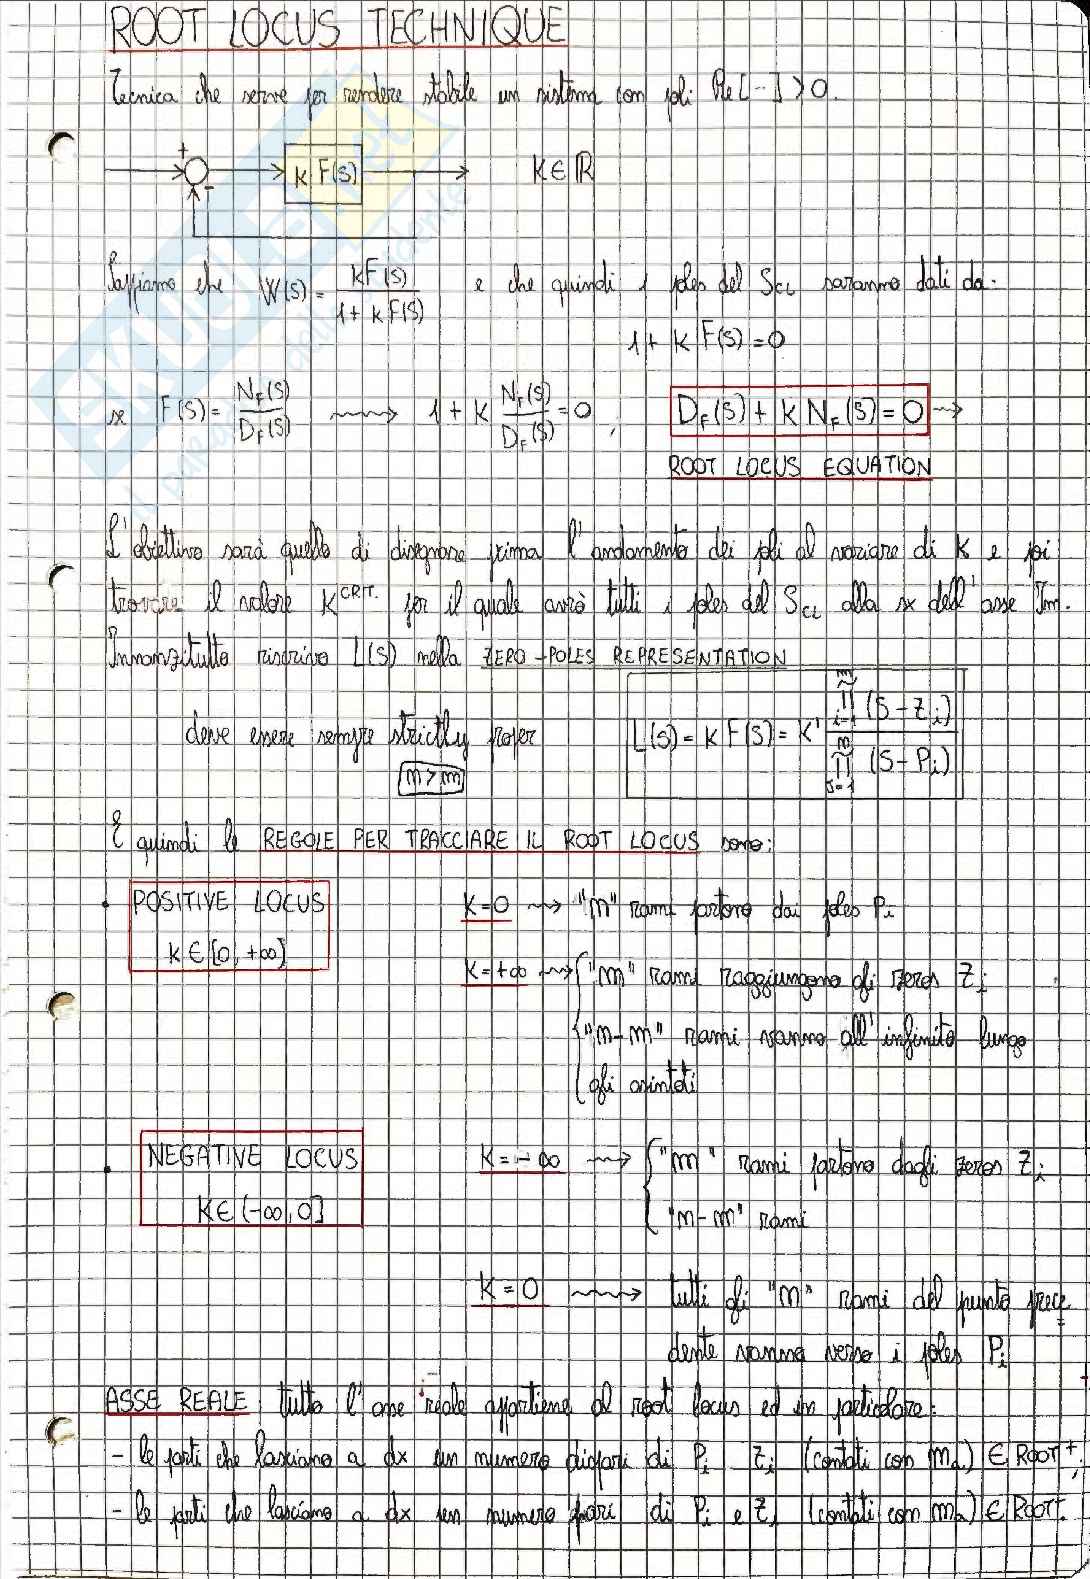 ROOT LOCUS TECHNIQUE
Tecnica che serve per rendere stabile un sistema con poli Re[-]>0.
+
-
K F(S)
K∈ℝ
Sappiamo che W(S) = KF(S) / 1+KF(S) e che quindi i poles del S_CL saranno dati da:
1+ K F(S) = 0
se F(S) = N_F(S) / D_F(S) ⇝ 1 + K N_F(S) / D_F(S) = 0, D_F(S) + K N_F(S) = 0 ⇝
ROOT LOCUS EQUATION
L'obiettivo sarà quello di disegnare prima l'andamento dei poli al variare di K e poi
trovare il valore K^CRIT. per il quale avrò tutti i poles del S_CL alla sx dell'asse Im.
Innanzitutto riscrivo L(S) nella ZERO-POLES REPRESENTATION
deve essere sempre strictly proper
n > m
L(S) = K F(S) = K' ∏_{i=1}^{m} (S-Z_i) / ∏_{J=1}^{n} (S-P_i)
E quindi le REGOLE PER TRACCIARE IL ROOT LOCUS sono:
• POSITIVE LOCUS
K∈[0,+∞)
K=0 ⇝ "n" rami partono dai poles P_i
K=+∞ ⇝ { "m" rami raggiungono gli zeros Z_i
"n-m" rami vanno all'infinito lungo
gli asintoti
• NEGATIVE LOCUS
K∈(-∞,0]
K=-∞ ⇝ { "m" rami partono dagli zeros Z_i
"n-m" rami
K=0 ⇝ tutti gli "n" rami del punto prece
dente vanno verso i poles P_i
ASSE REALE tutto l'asse reale appartiene al root locus ed in particolare:
- le parti che lasciano a dx un numero dispari di P_i Z_i (contati con m_a) ∈ ROOT⁺;
- le parti che lasciano a dx un numero pari di P_i e Z_i (contati con m_a) ∈ ROOT⁻.
SKUOLA.net
il paradiso dello studente